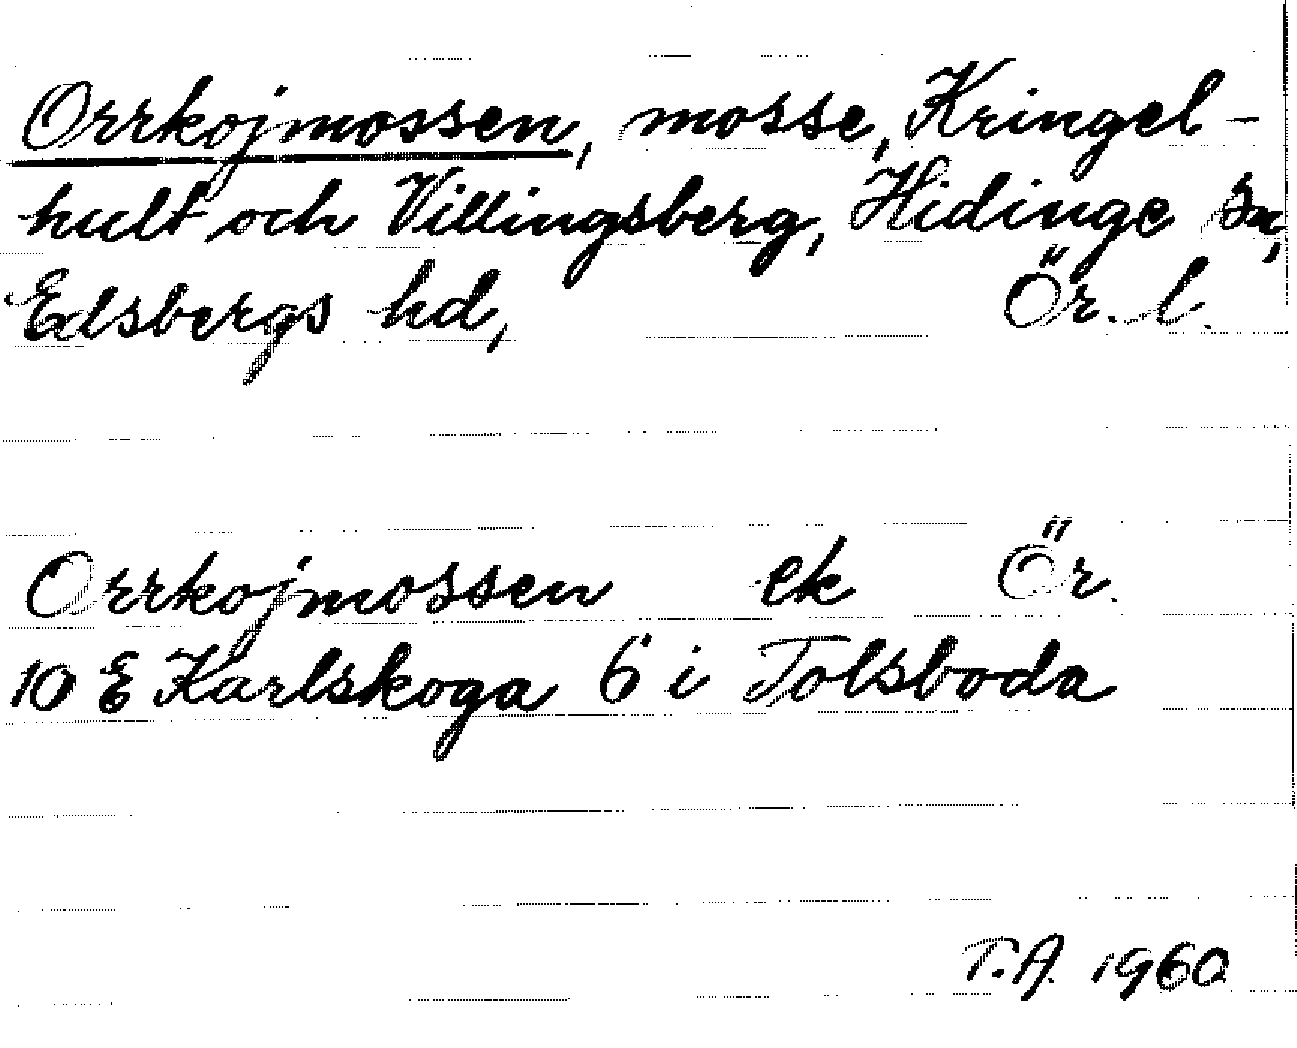 Orrkojmossen, mosse, Kringel-
hult och Villingsberg, Hidinge sn,
Edsbergs hd, Ör. l.
Orrkojmossen ek Ör.
10 E Karlskoga 6 i Tolsboda
T.A. 1960